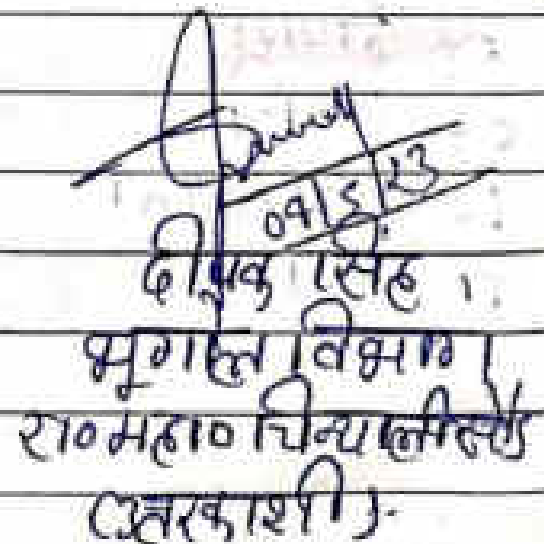 09/5/23
दीपक सिंह
भूगोल विभाग
रा० महा० चिन्यालीसौड़
(उत्तरकाशी).